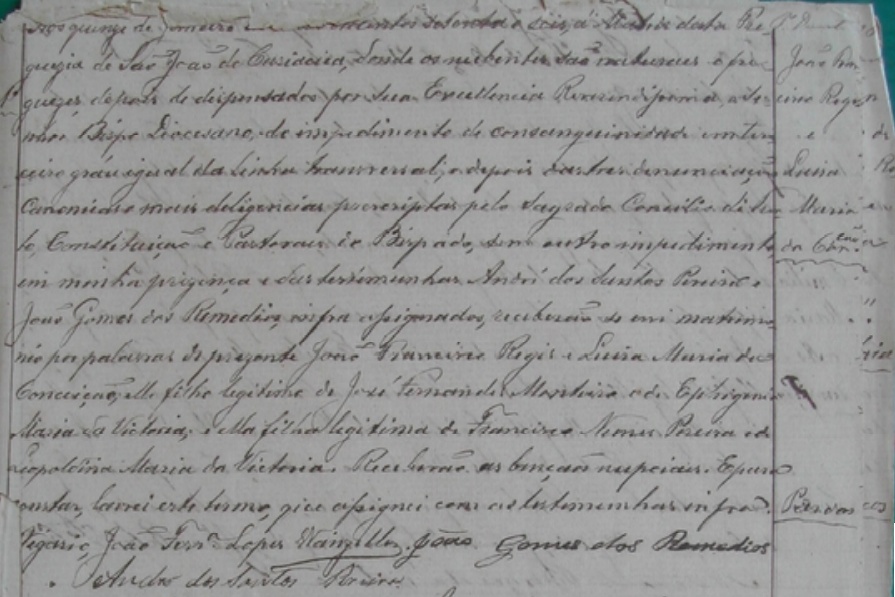 Aos quinze de Janeiro de mil oito centos setenta e seis, á Matriz desta Fre
guezia de São João de Cariacica, donde os nubentes são naturaes e fre
guezes, depois de dispensados por Sua Excellencia Reverendissima, o Se
nhor Bispo Diocesano, do impedimento de consanguinidade em ter
ceiro gráu igual da linha transversal; e depois das tres denunciações
Canonicas e mais deligencias prescriptas pelo Sagrado Concilio de Tren
to, Constituição e Pastoraes do Bispado, sem outro impedimento,
em minha prezença e das testemunhas André dos Santos Pereira e
João Gomes dos Remedios, infra assignados, receberão-se em matrimo
nio por palavras de prezente João Francisco Regis e Luisa Maria da
Conceição, elle filho legitimo de José Fernandes Monteiro e de Ephigenia
Maria da Victoria; e ella filha legitima de Francisco Nunes Pereira e de
Leopoldina Maria da Victoria. Receberão as bençãos nupciaes. E para
constar, lavrei este termo, que assignei com as testemunhas infra.
Vigario, João Ferr.ª Lopes João Gomes dos Remedios
André dos Santos Pereira
João Fran
cisco Regis
e
Luisa
Maria
da Conceição
Pardos